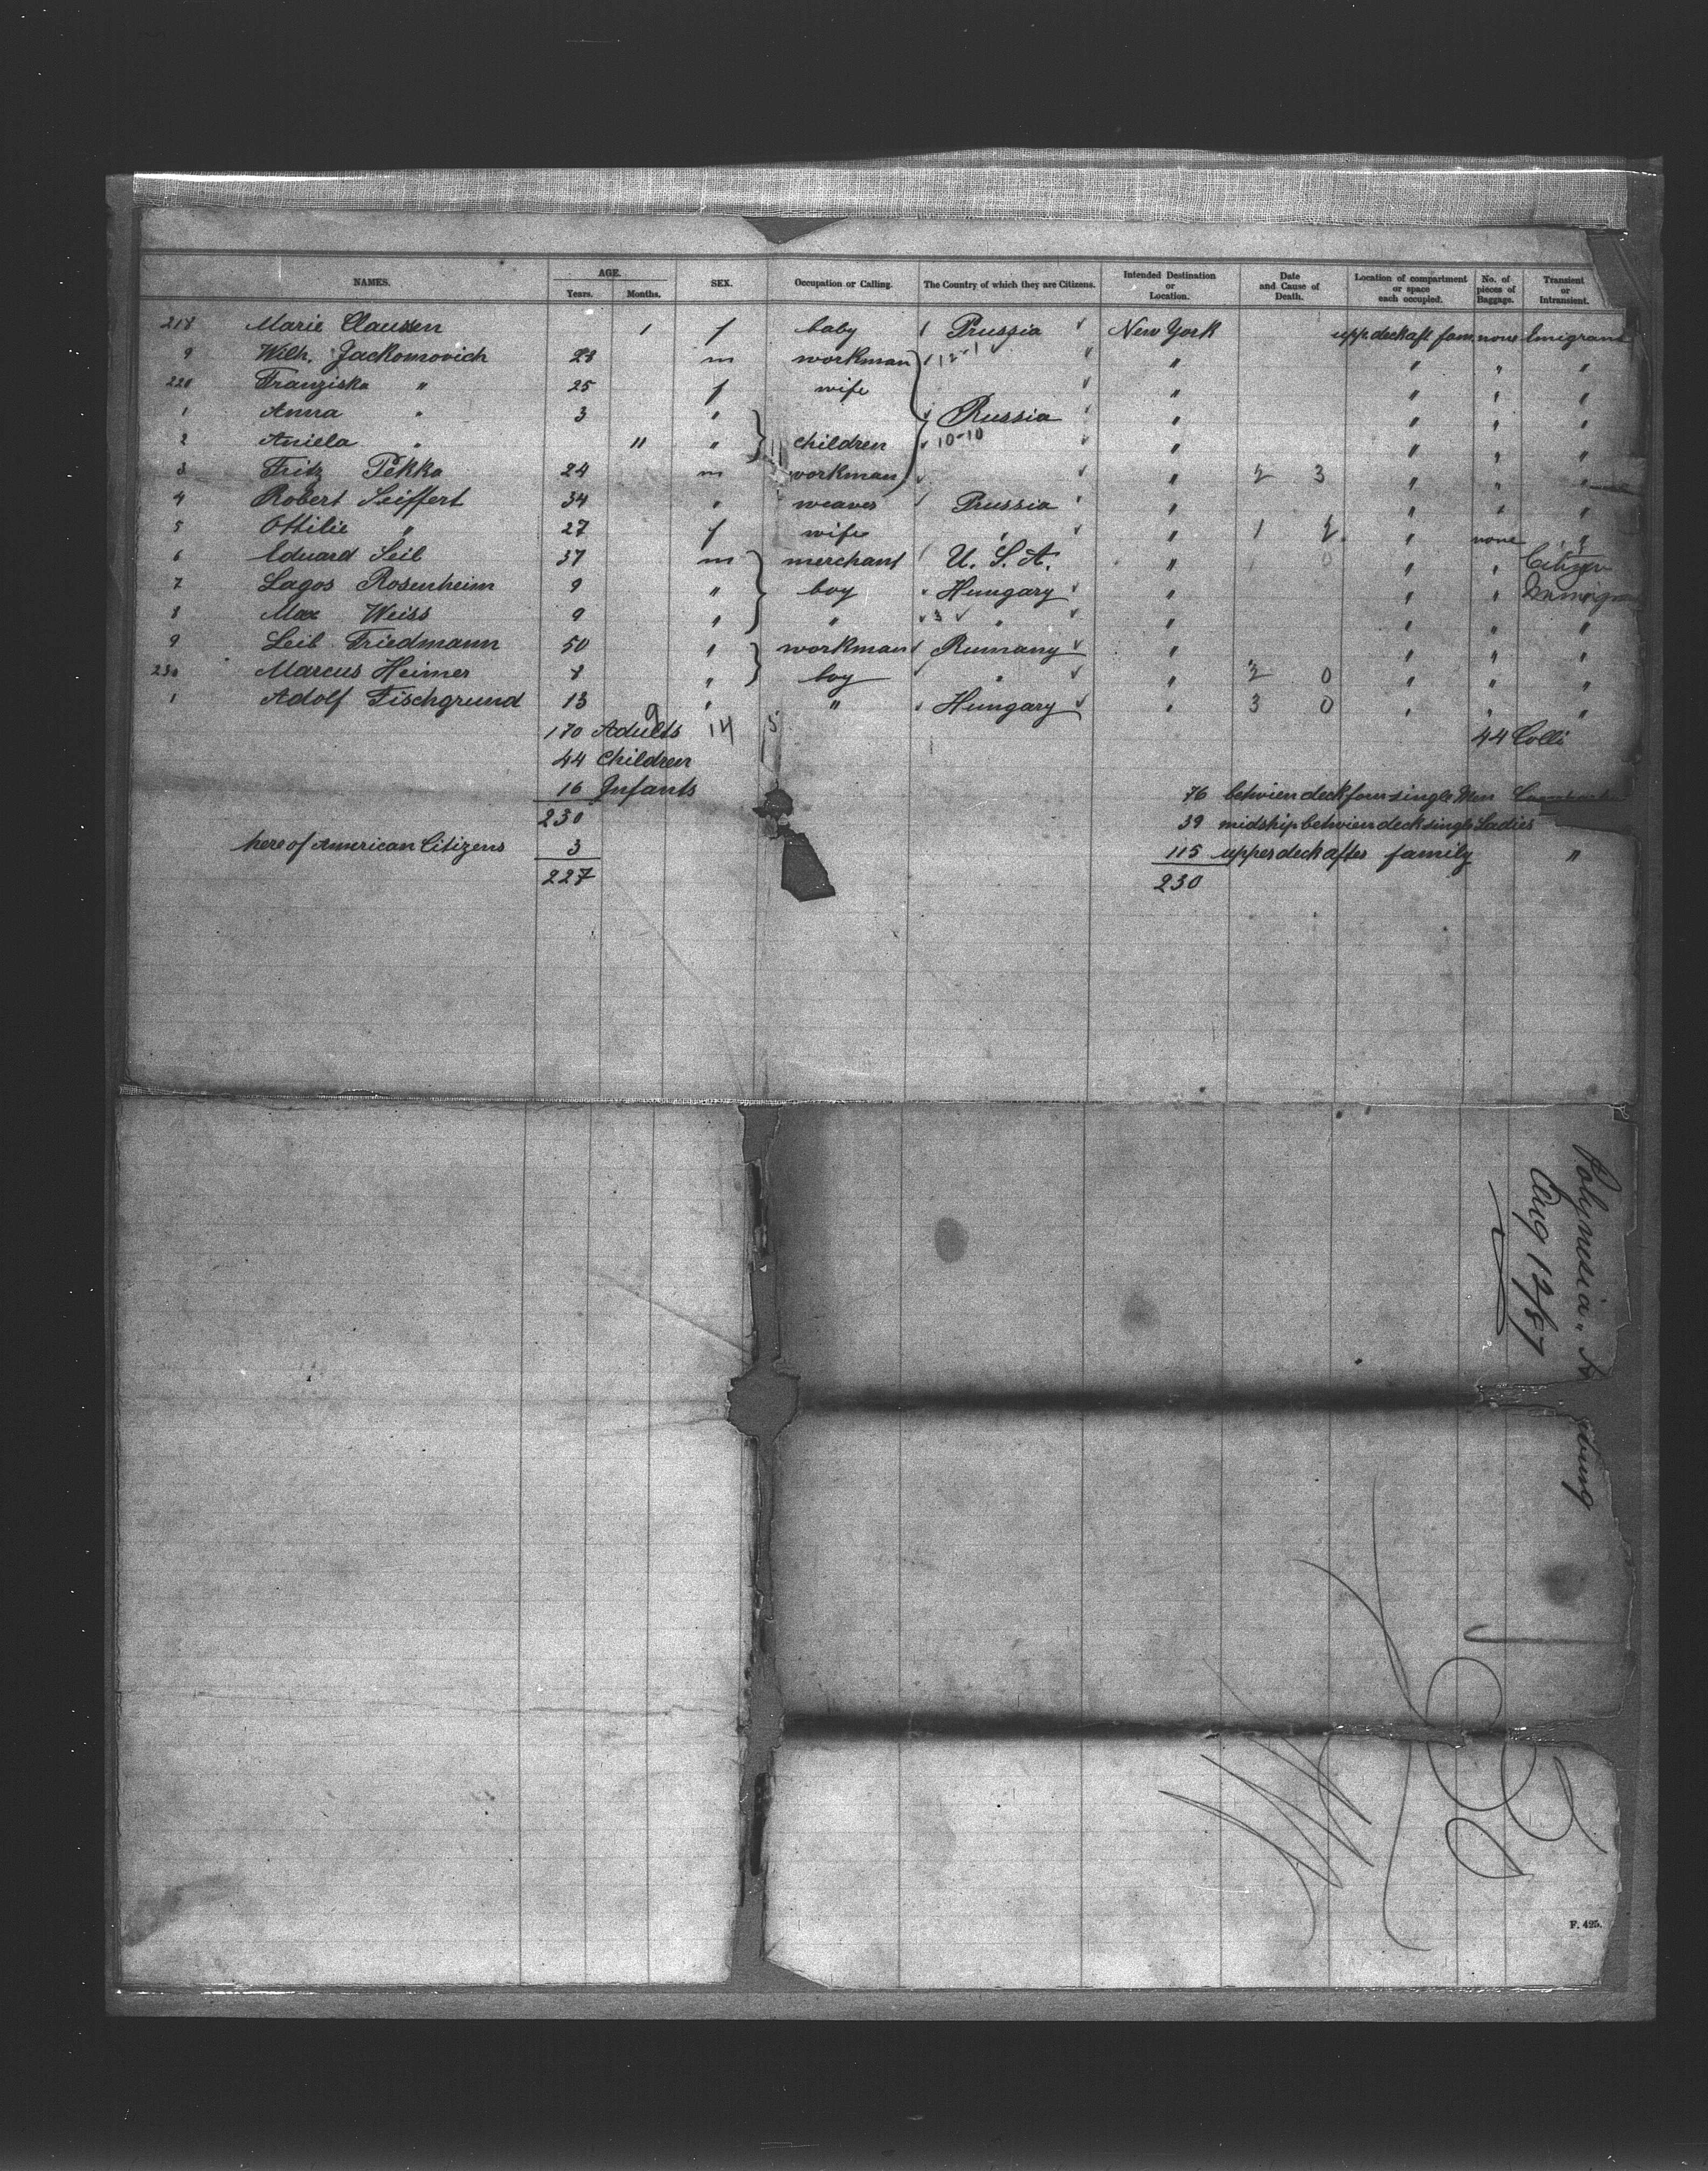 NAMES. AGE. Years. Months. SEX. Occupation or Calling. The Country of which they are Citizens. Intended Destination or Location. Date and Cause of Death. Location of compartment or space each occupied. No. of pieces of Baggage. Transient or Intransient.
218 Marie Claussen 1 f baby Prussia New York upp. deck aft fam. none Emigrant
9 Wilh. Jackomovich 28 m workman 12-1 " " " "
220 Franziska " 25 f wife " " " "
1 Anna " 3 " Russia " " " "
2 Aniela " 11 " children 10-10 " " " "
3 Fritz Pekka 24 m workman " 2 3 " " "
4 Robert Seiffert 34 " weaver Prussia " " " "
5 Ottilie " 27 f wife " " 1 2 " none "
6 Eduard Seib 37 m merchant U. S. A. " 0 " " Citizen
7 Lagos Rosenheim 9 " boy Hungary " " "
8 Max Weiss 9 " " 3 " " " " "
9 Leib Friedmann 50 " workman Rumany " " " "
230 Marcus Heimer 8 " boy " " 2 0 " " "
1 Adolf Fischgrund 13 " " Hungary " 3 0 " " "
170 Adults 9 14 5 44 Colli
44 Children
16 Infants 76 betwien deck fore single Men
230 39 midship betwien deck single Ladies
here of American Citizens 3 115 upper deck after family "
227 230
Polynesia. H burg
Aug 12/87
F. 425.